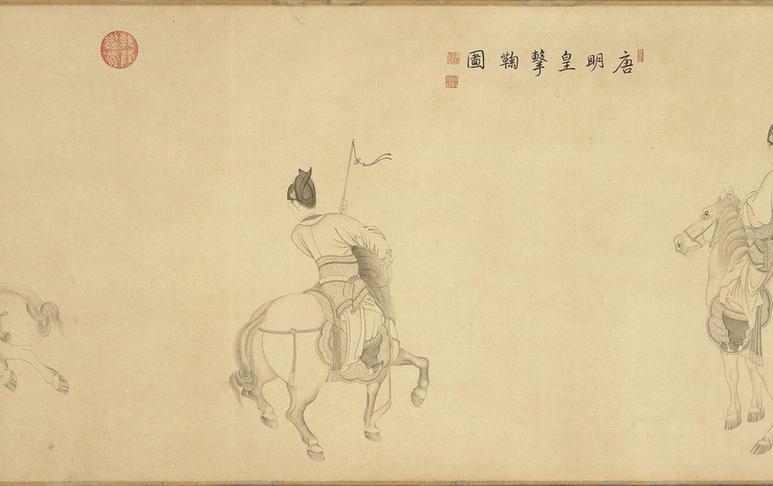 唐明皇擊鞠圖